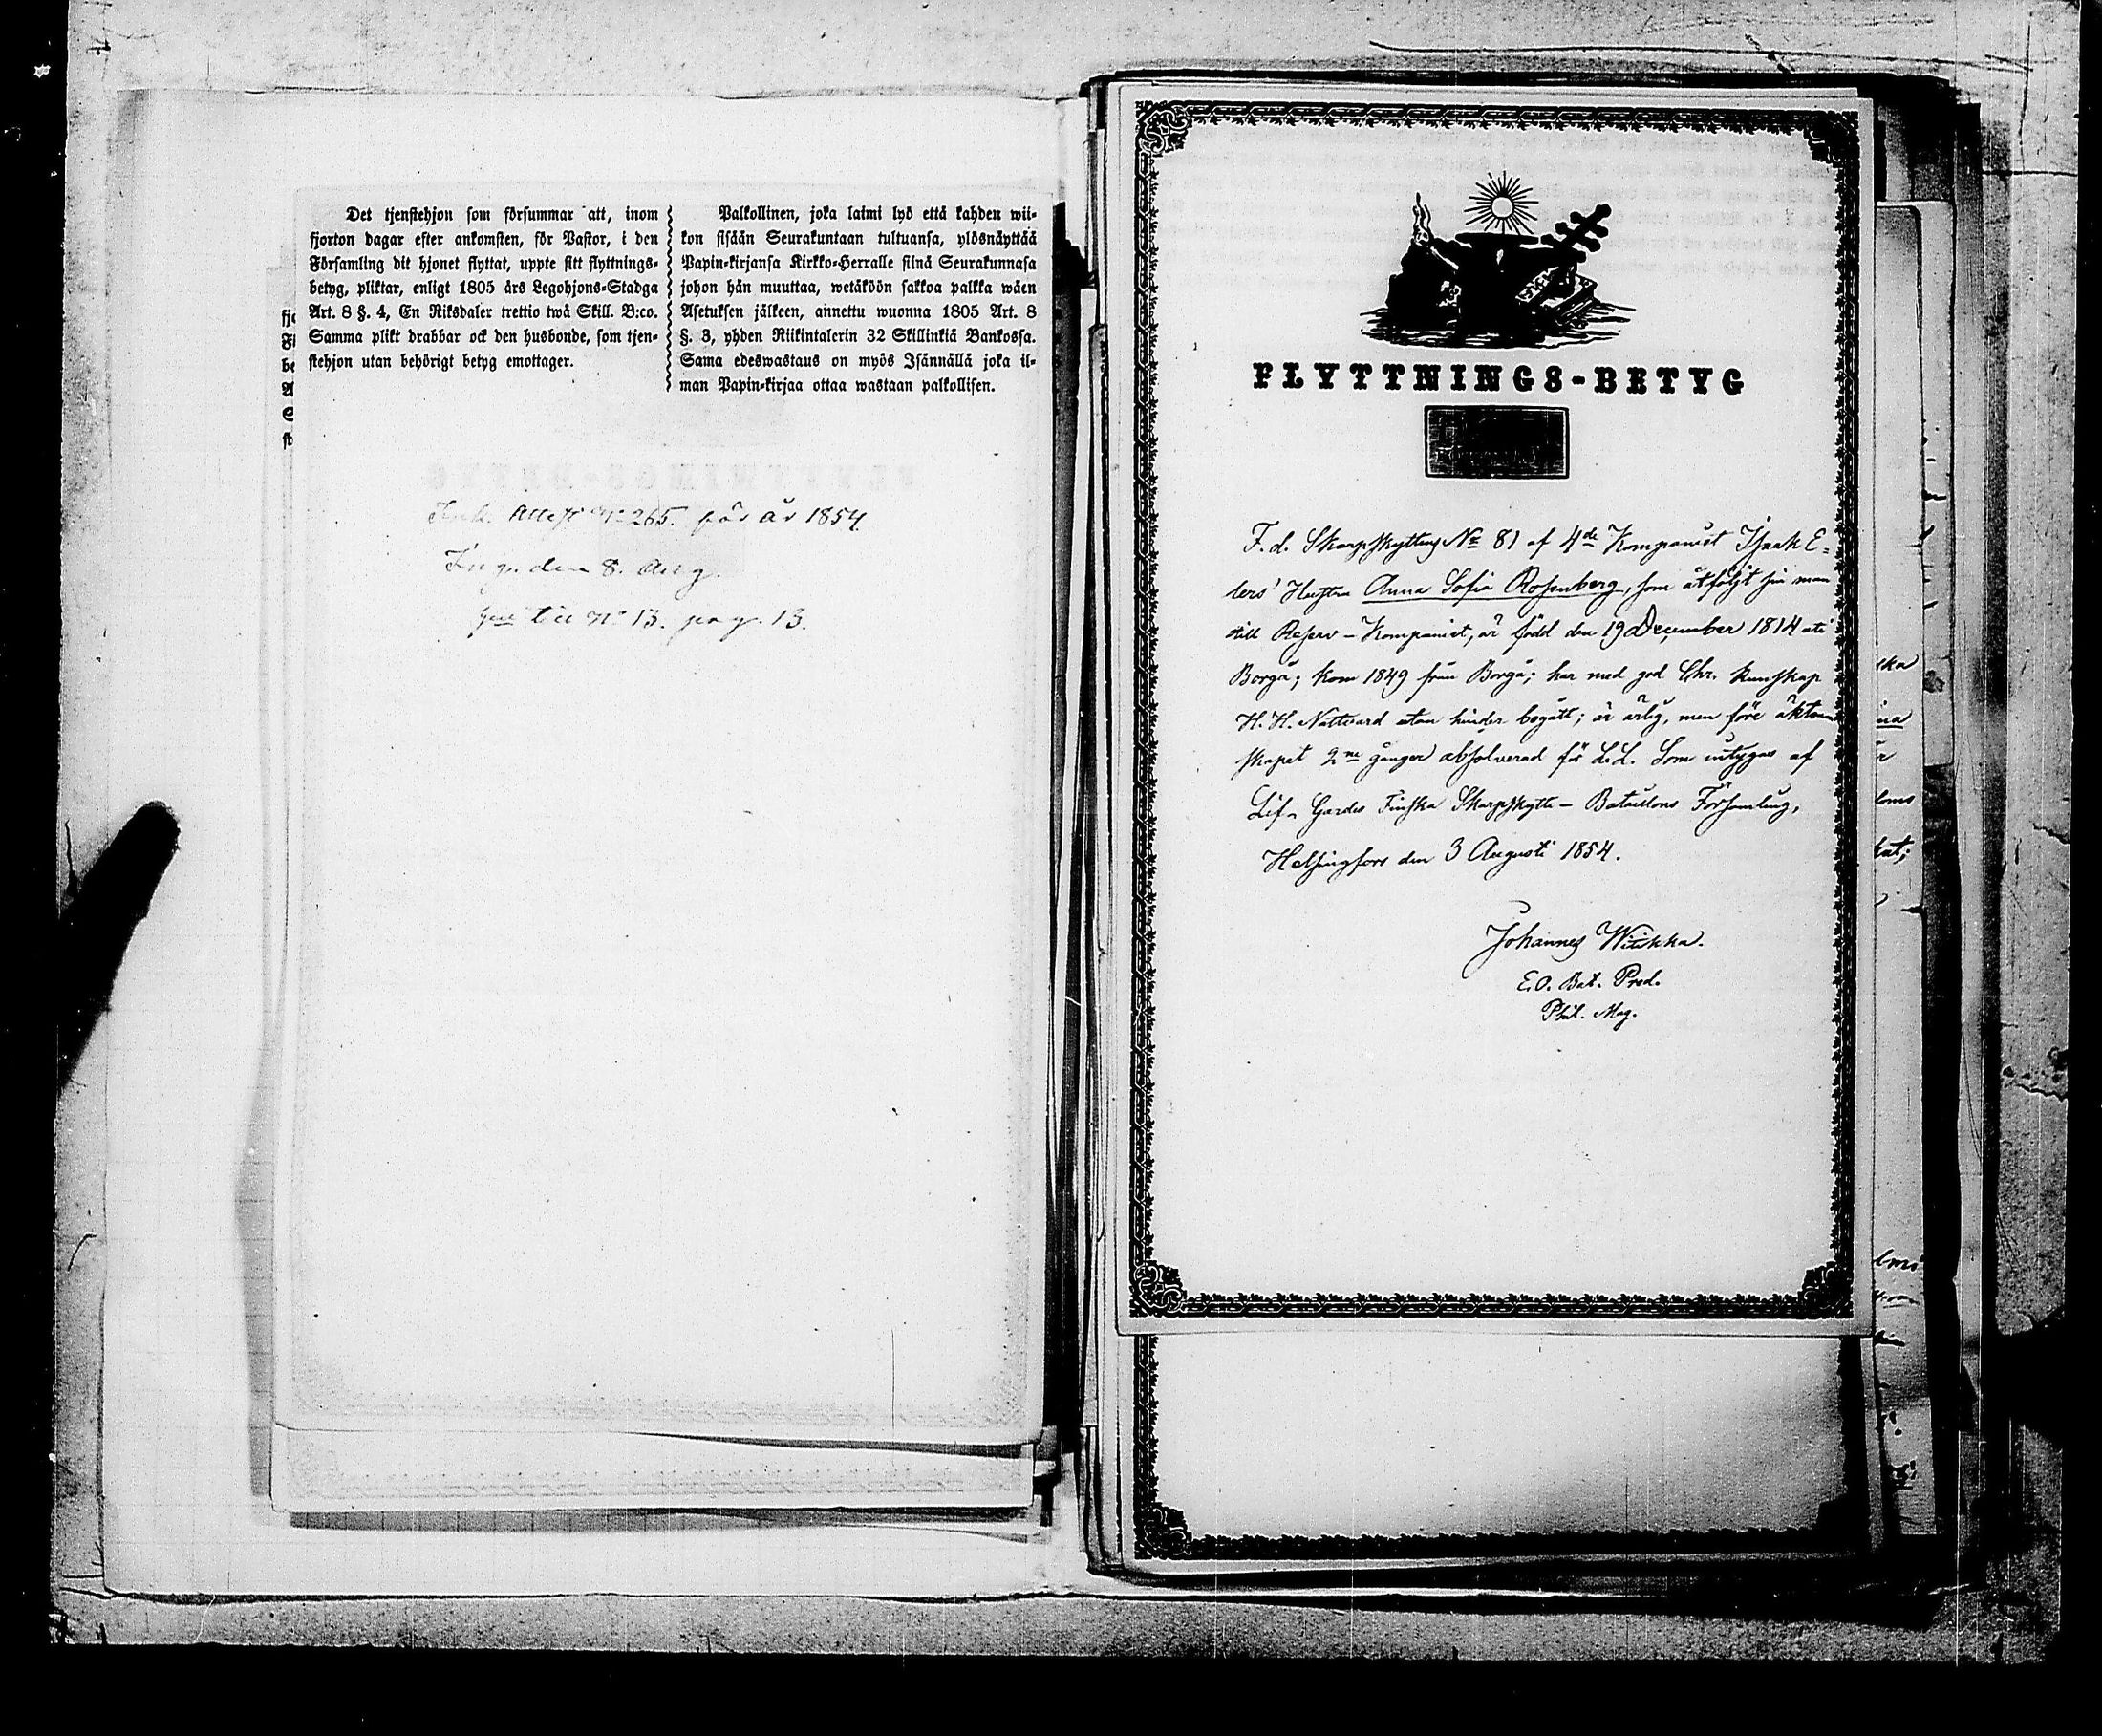 Det tjenstehjon som försummar att, inom
fjorton dagar efter ankomsten, för Pastor, i den
Församling dit hjonet flyttat, uppte sitt flyttnings-
betyg, pliktar, enligt 1805 års Legohjons-Stadga
Art. 8 §. 4, En Riksdaler trettio twå Skill. B:co.
Samma plikt drabbar ock den husbonde, som tjen-
stehjon utan behörigt betyg emottager.
Palkollinen, joka laimi lyö että kahden wii-
kon sisään Seurakuntaan tultuansa, ylösnäyttää
Papin-kirjansa Kirkko-Herralle siinä Seurakunnasa
johon hän muuttaa, wetäköön sakkoa palkka wäen
Asetuksen jälkeen, annettu wuonna 1805 Art. 8
§. 3, yhden Riikintalerin 32 Skillinkiä Bankossa.
Sama edeswastaus on myös Isännällä joka il-
man Papin-kirjaa ottaa wastaan palkollisen.
Attest No 265. för år 1854.
den 8. Aug.
No 13. pag. 13.
FLYTTNINGS-BETYG
F. d. Skarpskyttens No 81 af 4de Kompaniet Isaak E-
lers' Hustru Anna Sofia Rosenberg, som åtföljt sin man
till Reserv-Kompaniet, är född den 19 December 1814 uti
Borgå; kom 1849 från Borgå; har med god Chr. kunskap
H. H. Nattvard utan hinder begått; är ärlig, men före äkten-
skapet 2ne gånger absolverad för L.L. Som intygas af
Lif-Gardes Finska Skarpskytte-Bataillons Församling,
Helsingfors den 3 Augusti 1854.
Johannes Wiikka.
E.O. Bat. Pred.
Phil. Mag.